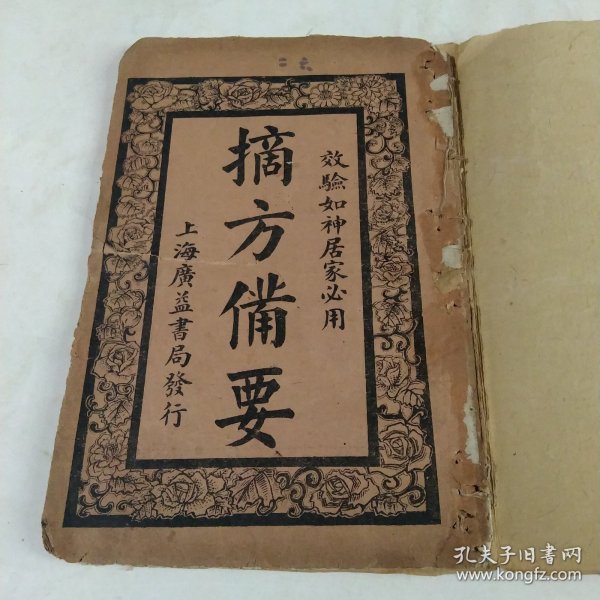 效驗如神居家必用
摘方備要
上海廣益書局發行
孔夫子旧书网
www.kongfz.com